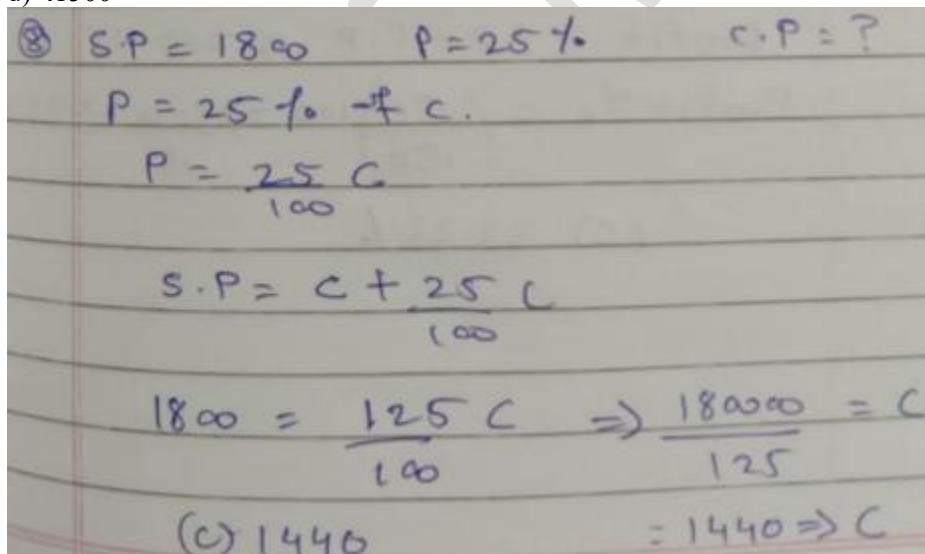 ⑧ S.P = 1800 P = 25% C.P = ?
P = 25% of C.
P = 25/100 C
S.P = C + 25/100 C
1800 = 125/100 C ⇒ 180000/125 = C
(C) 1440 = 1440 ⇒ C